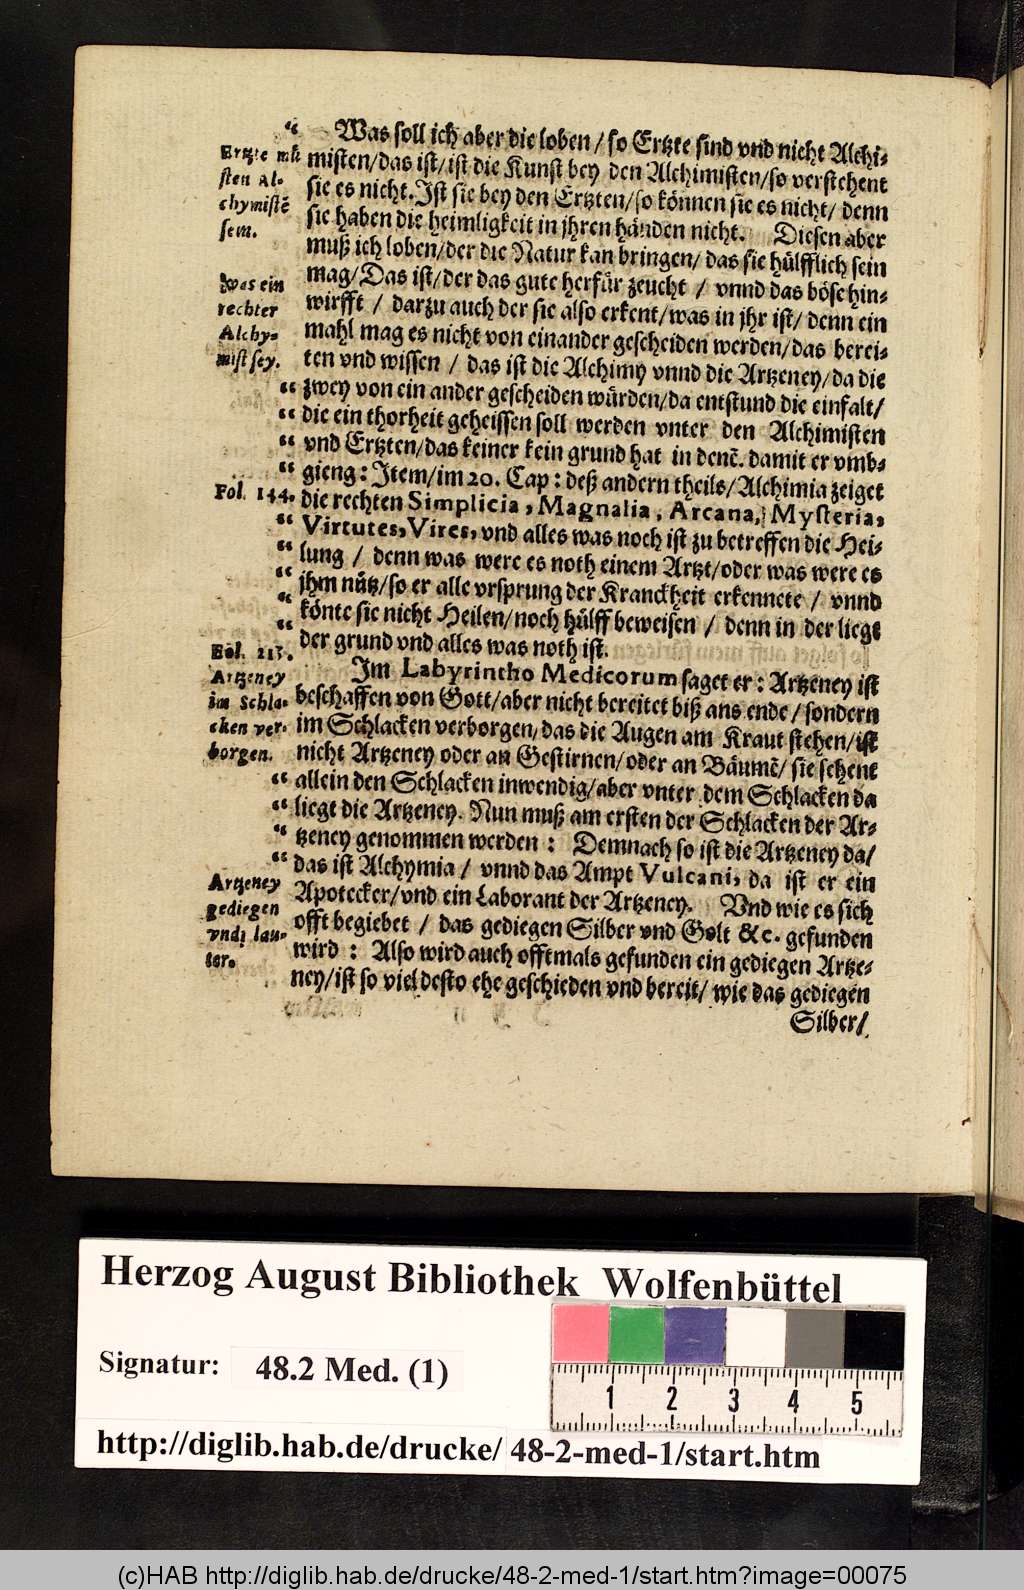 “ Was soll ich aber die loben / so Ertzte sind vnd nicht Alchi-
misten/das ist/ist die Kunst bey den Alchimisten/so verstehent
sie es nicht. Ist sie bey den Ertzten/so können sie es nicht/ denn
sie haben die heimligkeit in jhren händen nicht. Diesen aber
muß ich loben/der die Natur kan bringen/ das sie hülfflich sein
mag/Das ist/der das gute herfür zeucht / vnnd das böse hin-
wirfft / darzu auch der sie also erkent/was in jhr ist/ denn ein
mahl mag es nicht von einander gescheiden werden/das berei-
ten vnd wissen / das ist die Alchimy vnnd die Artzeney/da die
“ zwey von ein ander gescheiden würden/da entstund die einfalt/
“ die ein thorheit geheissen soll werden vnter den Alchimisten
“ vnd Ertzten/das keiner kein grund hat in denē. damit er vmb-
“ gieng: Item/im 20. Cap: deß andern theils/Alchimia zeiget
die rechten Simplicia, Magnalia, Arcana, Mysteria,
“ Virtutes, Vires, vnd alles was noch ist zu betreffen die Hei-
“ lung / denn was were es noth einem Artzt/oder was were es
“ jhm nütz/so er alle vrsprung der Kranckheit erkennete / vnnd
“ könte sie nicht Heilen/noch hülff beweisen / denn in der liegt
“ der grund vnd alles was noth ist.
Im Labyrintho Medicorum saget er: Artzeney ist
beschaffen von Gott/aber nicht bereitet biß ans ende / sondern
im Schlacken verborgen, das die Augen am Kraut stehen/ist
nicht Artzeney oder an Gestirnen/oder an Bäumē/ sie sehent
“ allein den Schlacken inwendig/aber vnter dem Schlacken da
“ liegt die Artzeney. Nun muß am ersten der Schlacken der Ar-
“ tzeney genommen werden : Demnach so ist die Artzeney da/
“ das ist Alchymia / vnnd das Ampt Vulcani, da ist er ein
Apotecker/vnd ein Laborant der Artzeney. Vnd wie es sich
offt begiebet / das gediegen Silber vnd Golt &c. gefunden
wird : Also wird auch offtmals gefunden ein gediegen Artze-
ney/ist so viel desto ehe geschieden vnd bereit/ wie das gediegen
Silber/
Ertzte mü
sten Al-
chymistē
sem.
Was ein
rechter
Alchy-
mist sey.
Fol. 144.
Fol. 213.
Artzeney
im Schla-
cken ver-
borgen.
Artzeney
gediegen
vnd lau-
ter.
Herzog August Bibliothek Wolfenbüttel
Signatur: 48.2 Med. (1)
1 2 3 4 5
http://diglib.hab.de/drucke/ 48-2-med-1/start.htm
(c)HAB http://diglib.hab.de/drucke/48-2-med-1/start.htm?image=00075